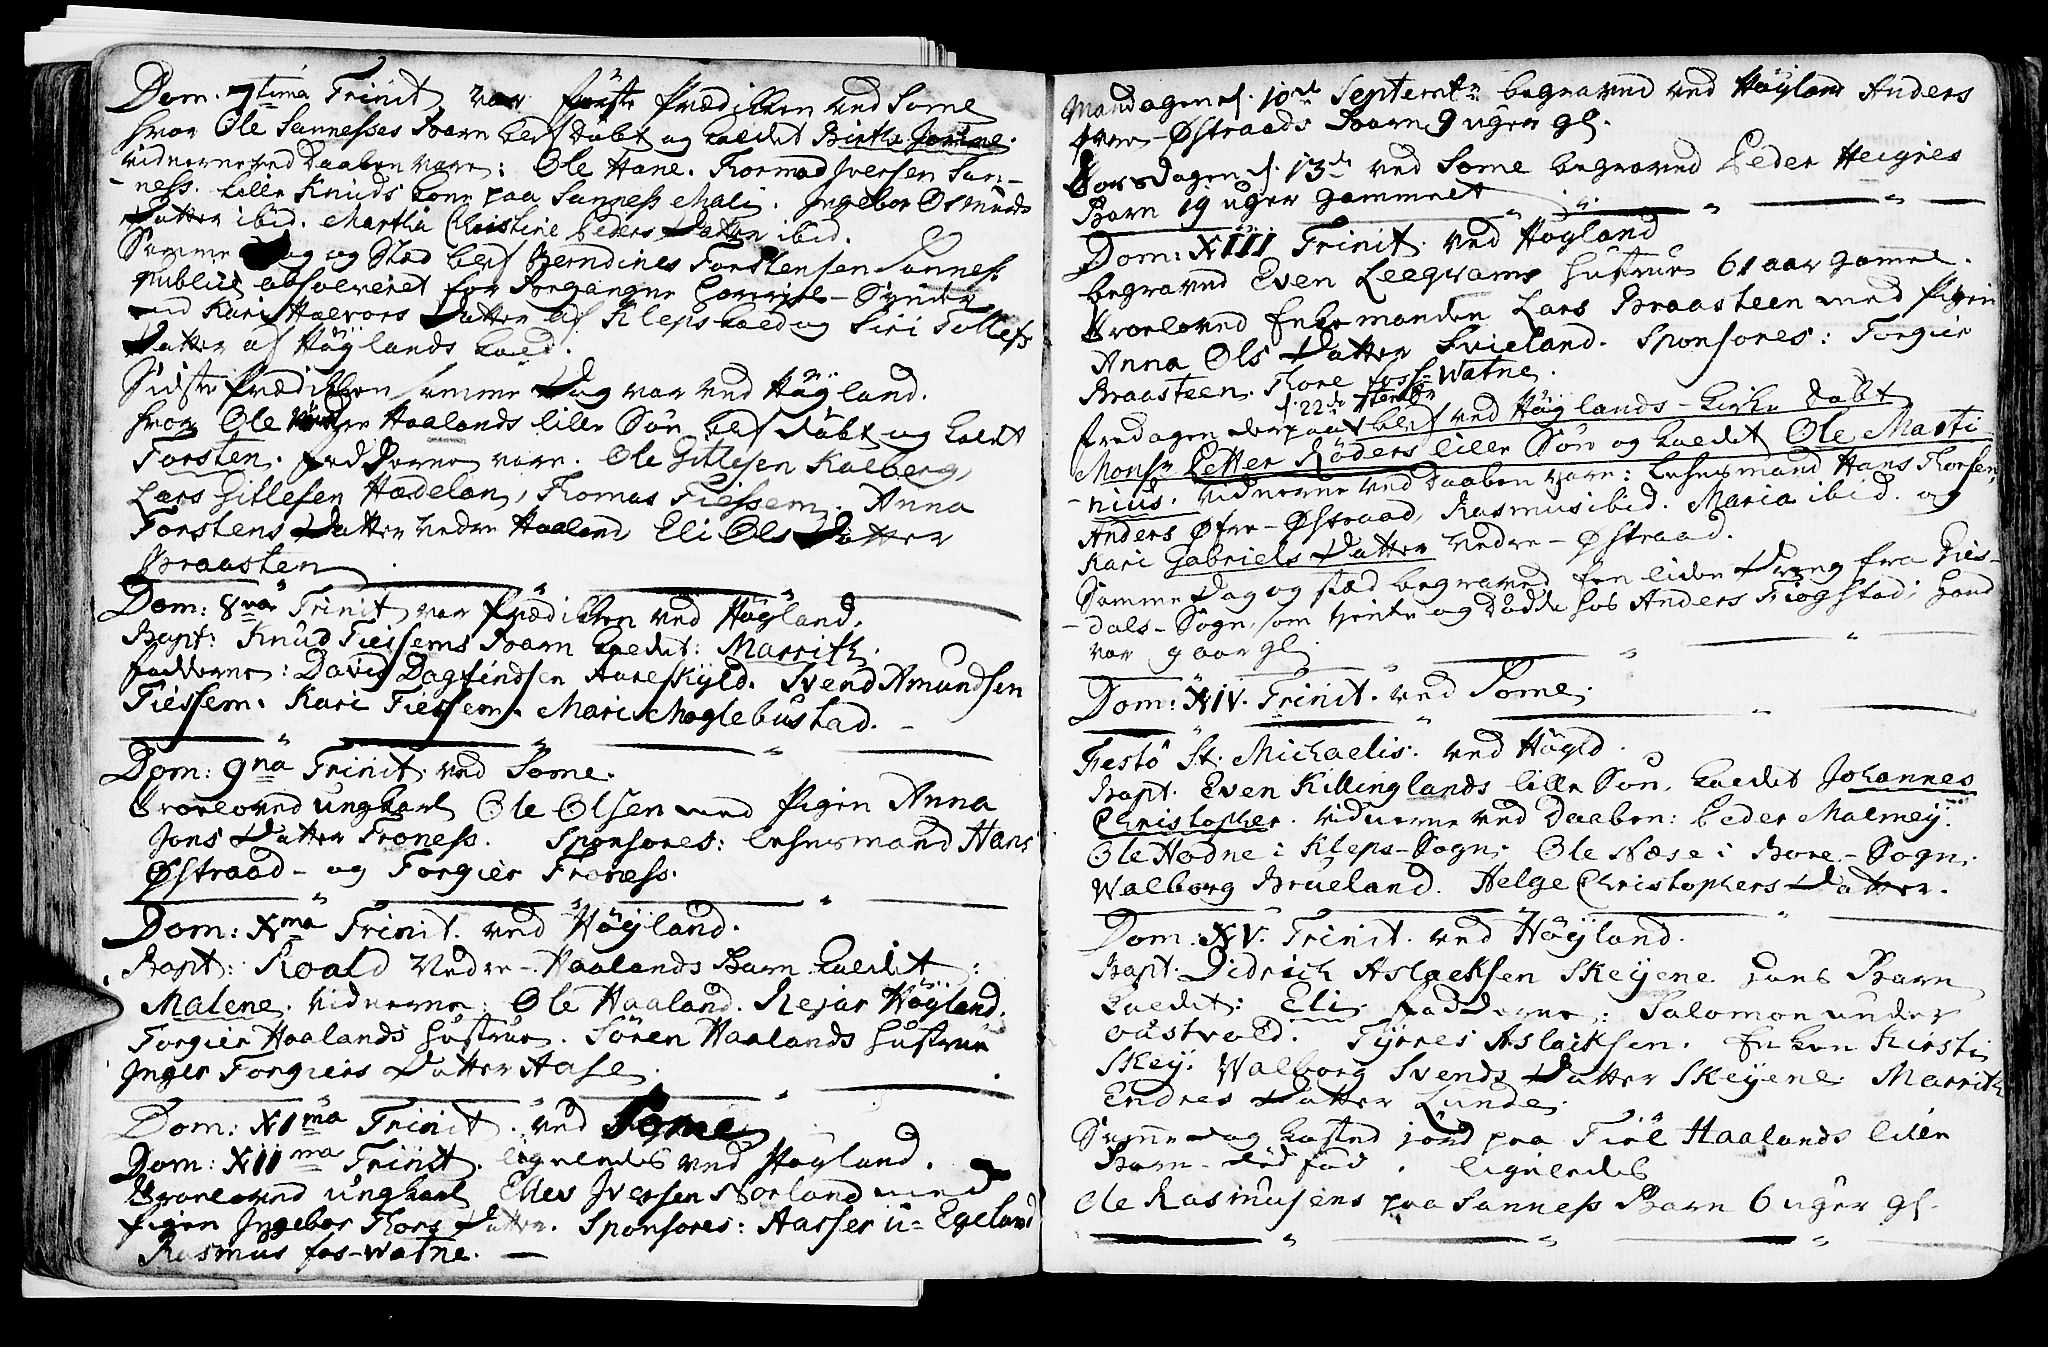 Dom. 7tima Trinit var første Prædiken ved Some
hvor Ole Sannesses Barn blef døbt og kaldet Birthe Jorine.
Vidnerne ved Daaben vare: Ole Hane. Tormod Iversen San-
-ness. Lille Knuds kone paa Sanness Mali. Ingebor Osmunds
Datter ibid. Martha Christine Peders Datter ibid.
Samme Dag og Stæd blef Berndines Torstensen Sanness
publice absolveret for begangne Sønder
med Kari Halvors Datter af Kleps kald og Siri Tollefs
Datter af Höÿlands kald.
Sidste Prædiken samme Dag var ved Höÿland.
hvor Ole Haalands lille Søn blef døbt og kaldt
Torsten. Fadderne vare. Ole Gitlesen Kalberg,
Lars Gitlesen Hadelan, Thomas Tiessem. Anna
Torstens Datter Nedre Haaland Eli Ols Datter
Braasten.
Dom: 8va Trinit var Prædiken ved Höÿland.
Bapt: Knud Tiessems Barn kaldet: Marrith.
Fadderne: David Dagfindsen Aureskÿld. Svend Amundsen
Tiessem. Kari Tiessem. Mari Moglebustad.
Dom: 9na Trinit. ved Some.
Troloved ungkarl Ole Olsen med Pigen Anna
Jons Datter Froness. Sponsores: Lehnsmand Hans
Østraad - og Torgier Froness.
Dom: Xma Trinit. ved Höÿland.
Bapt: Roald Nedre-Haalands Barn kaldet:
Malene. Vidnerne: Ole Haaland. Rejar Höÿland.
Torgier Haalands Hustrue. Sören Haalands Hustrue
Inger Torgiers Datter Aase.
Dom: XIma Trinit. ved Some
Dom: XIIma Trinit. ligeledes ved Höÿland.
Troloved ungkarl Elles Iversen Norland med
Pigen Ingebor Thors Datter. Sponsores: Aasser u= Egeland
Rasmus fos-watne.
Mandagen d. 10de Septembr begraved ved Höÿland Anders
Øvre-Østraads Barn 9 uger gl.
Torsdagen d. 13de ved Some begraved Peder Heignes
Barn 19 uger gammelt
Dom: XIII Trinit. ved Höÿland
begraved Even Leegvams Hustrue 61 aar gamel.
Troloved Enkemanden Lars Braasteen med Pigen
Anna Ols Datter Svieland. Sponsores: Torgier
Braasteen. Thore foss-watne.
d. 22de
Fredagen derpaa blef ved Höÿlands-kirke døbt
Monsr Petter Röders lille Søn og kaldet Ole Marti-
-nius. Vidnerne ved Daaben vare: Lehnsmand Hans Thorsen,
Anders Øfre-Østraad, Rasmus ibid. Maria ibid. og
Kari Gabriels Datter Nedre-Østraad.
Samme Dag og stæd begraved En liden Dreng fra Gies-
-dals-Sogn, som tiente og døde hos Anders Tiøgstad; hand
var 9 aar gl
Dom: XIV. Trinit. ved Some.
Festo St. Michaelis. ved Höÿld.
Bapt. Even Killinglands lille Søn. kaldet Johannes
Christopher. Vidnerne ved Daaben: Peder Malmeÿ.
Ole Hodne i Kleps-Sogn. Ole Næse i Bore-Sogn.
Walborg Brueland. Helge Christophers Datter.
Dom. XV. Trinit. ved Höÿland.
Bapt. Didrich Aslacksen Skeÿene hans Barn
kaldet: Eli. Fadderne: Salomon under
Austvold. Tÿrres Aslacksen. Enken Kirsti
Skeÿ. Walborg Svends Datter Skeÿene. Marrith
Endres Datter Lunde.
Samme dag kasted jord paa Tiöl Haalands lille
Barn - död fød. ligeledes
Ole Rasmusens paa Sanness Barn 6 uger gl.